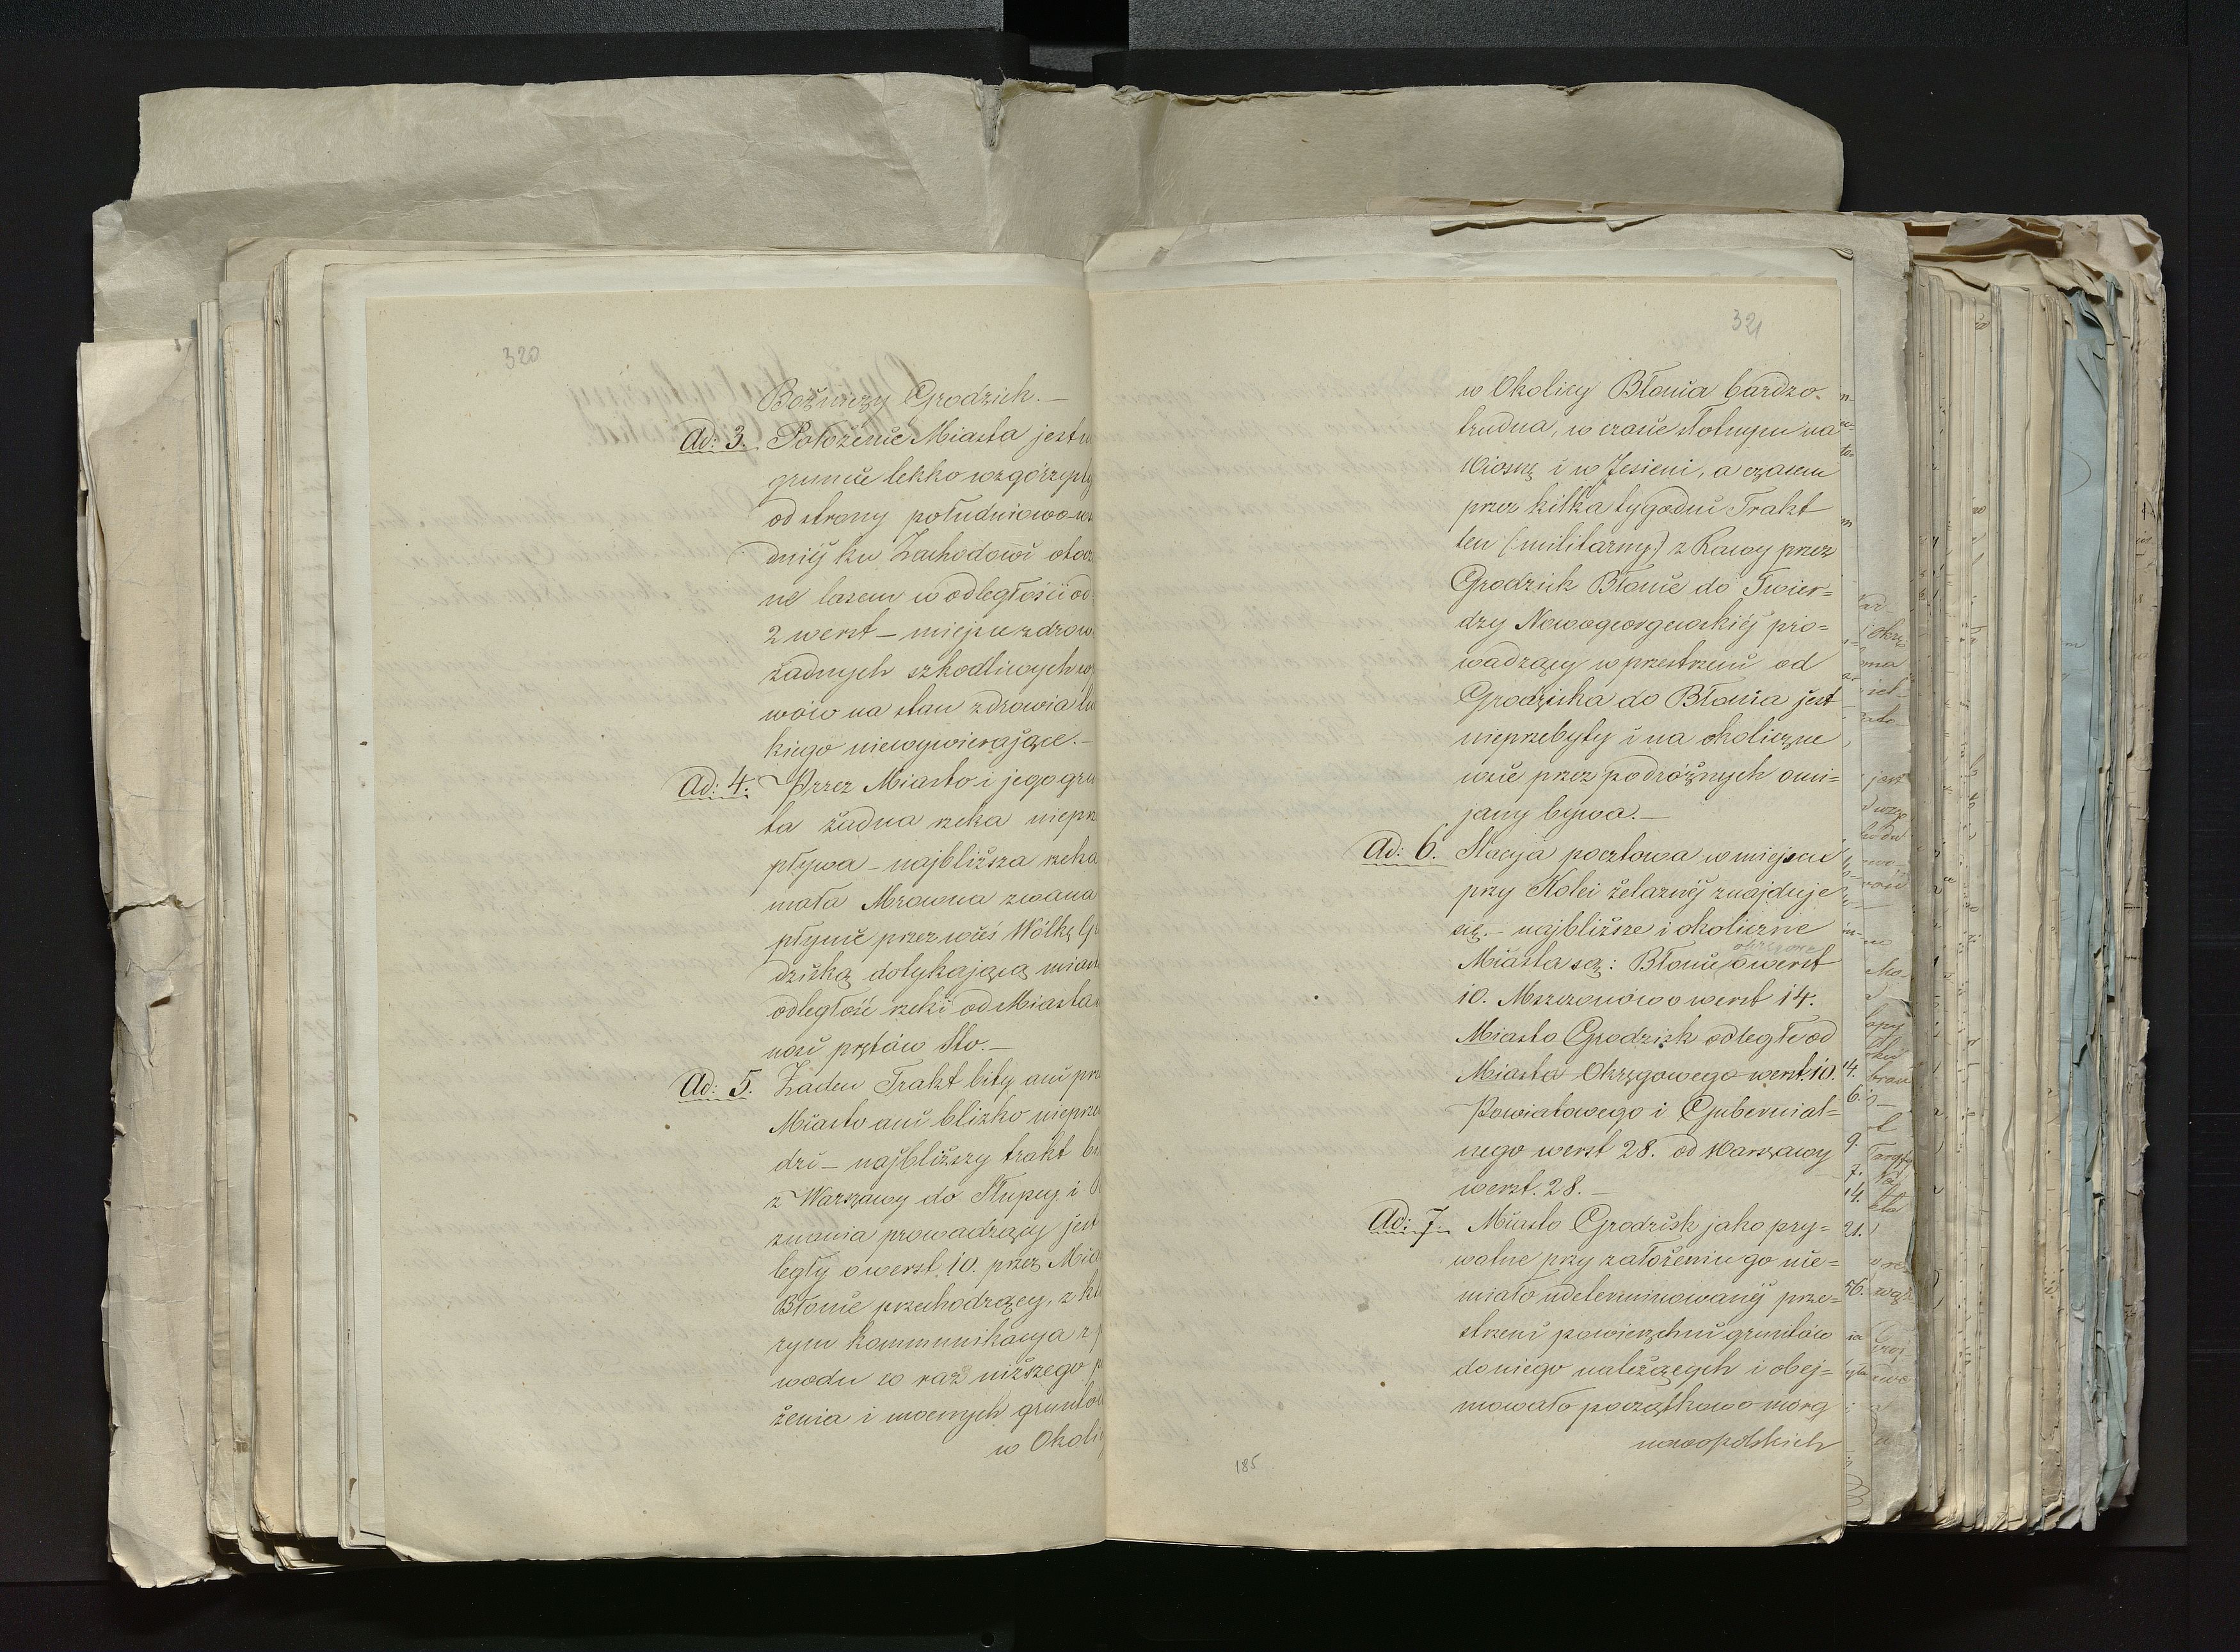 320
Bożniczy Grodzisk. —
Ad: 3. Położenie Miasta jest w
gruncie lekko wzgórzyst
od strony południowo-ws
dniéj ku Zachodowi otocz
ne lasem w odległości od
2 werst — miejsce zdrow
żadnych szkodliwych w
wów na stan zdrowia lu
kiego niewywierające. —
Ad: 4. Przez Miasto i jego gru
ta żadna rzeka nieprze
pływa — najbliższa rzeka
mała Mrowna zwana
płynie przez wieś Wólkę G
dziską dotykającą mias
odległość rzeki od Miasta
nosi prętów Sto. —
Ad: 5. Żaden Trakt bity ani prz
Miasto ani blizko nieprze
dzi — najbliższy trakt bi
z Warszawy do Słupcy i
znania prowadzący jest
legły o werst 10. przez Mia
Błonie przechodzący, z kt
rym kommunikacya z p
wodu co raz niższego p
żenia i mocnych gruntów
w Okoli
321
w Okolicy Błonia bardzo
trudna, w czasie słotnym na
Wiosnę i w Jesieni, a czasem
przez kilka tygodni Trakt
ten (militarny) z Rawy przez
Grodzisk Błonie do Twier=
dzy Nowogeorgewskiéj pro=
wadzący w przestrzeni od
Grodziska do Błonia jest
nieprzebyty i na okoliczne
wsie przez podróżnych omi=
jany bywa. —
Ad: 6. Stacyja pocztowa w miejscu
przy Kolei żelaznéj znajduje
się. — najbliższe i okoliczne
Miasta są: Błonie o werst
10. Mszczonów o werst 14.
Miasto Grodzisk odległe od
Miasta Okręgowego werst. 10.
Powiatowego i Gubernial=
nego werst 28. od Warszawy
werst. 28. —
Ad: 7. Miasto Grodzisk jako pry=
watne przy założeniu go nie=
miało udeterminowanéj prze=
strzeni powierzchni gruntów
do niego należących i obej=
mowało początkowo morg
nowopolskich
185